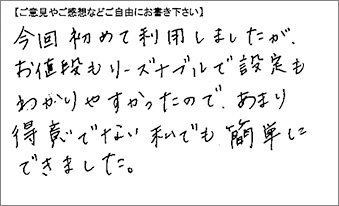 【ご意見やご感想などご自由にお書き下さい】
今回初めて利用しましたが、
お値段もリーズナブルで設定も
わかりやすかったので、あまり
得意でない私でも簡単に
できました。